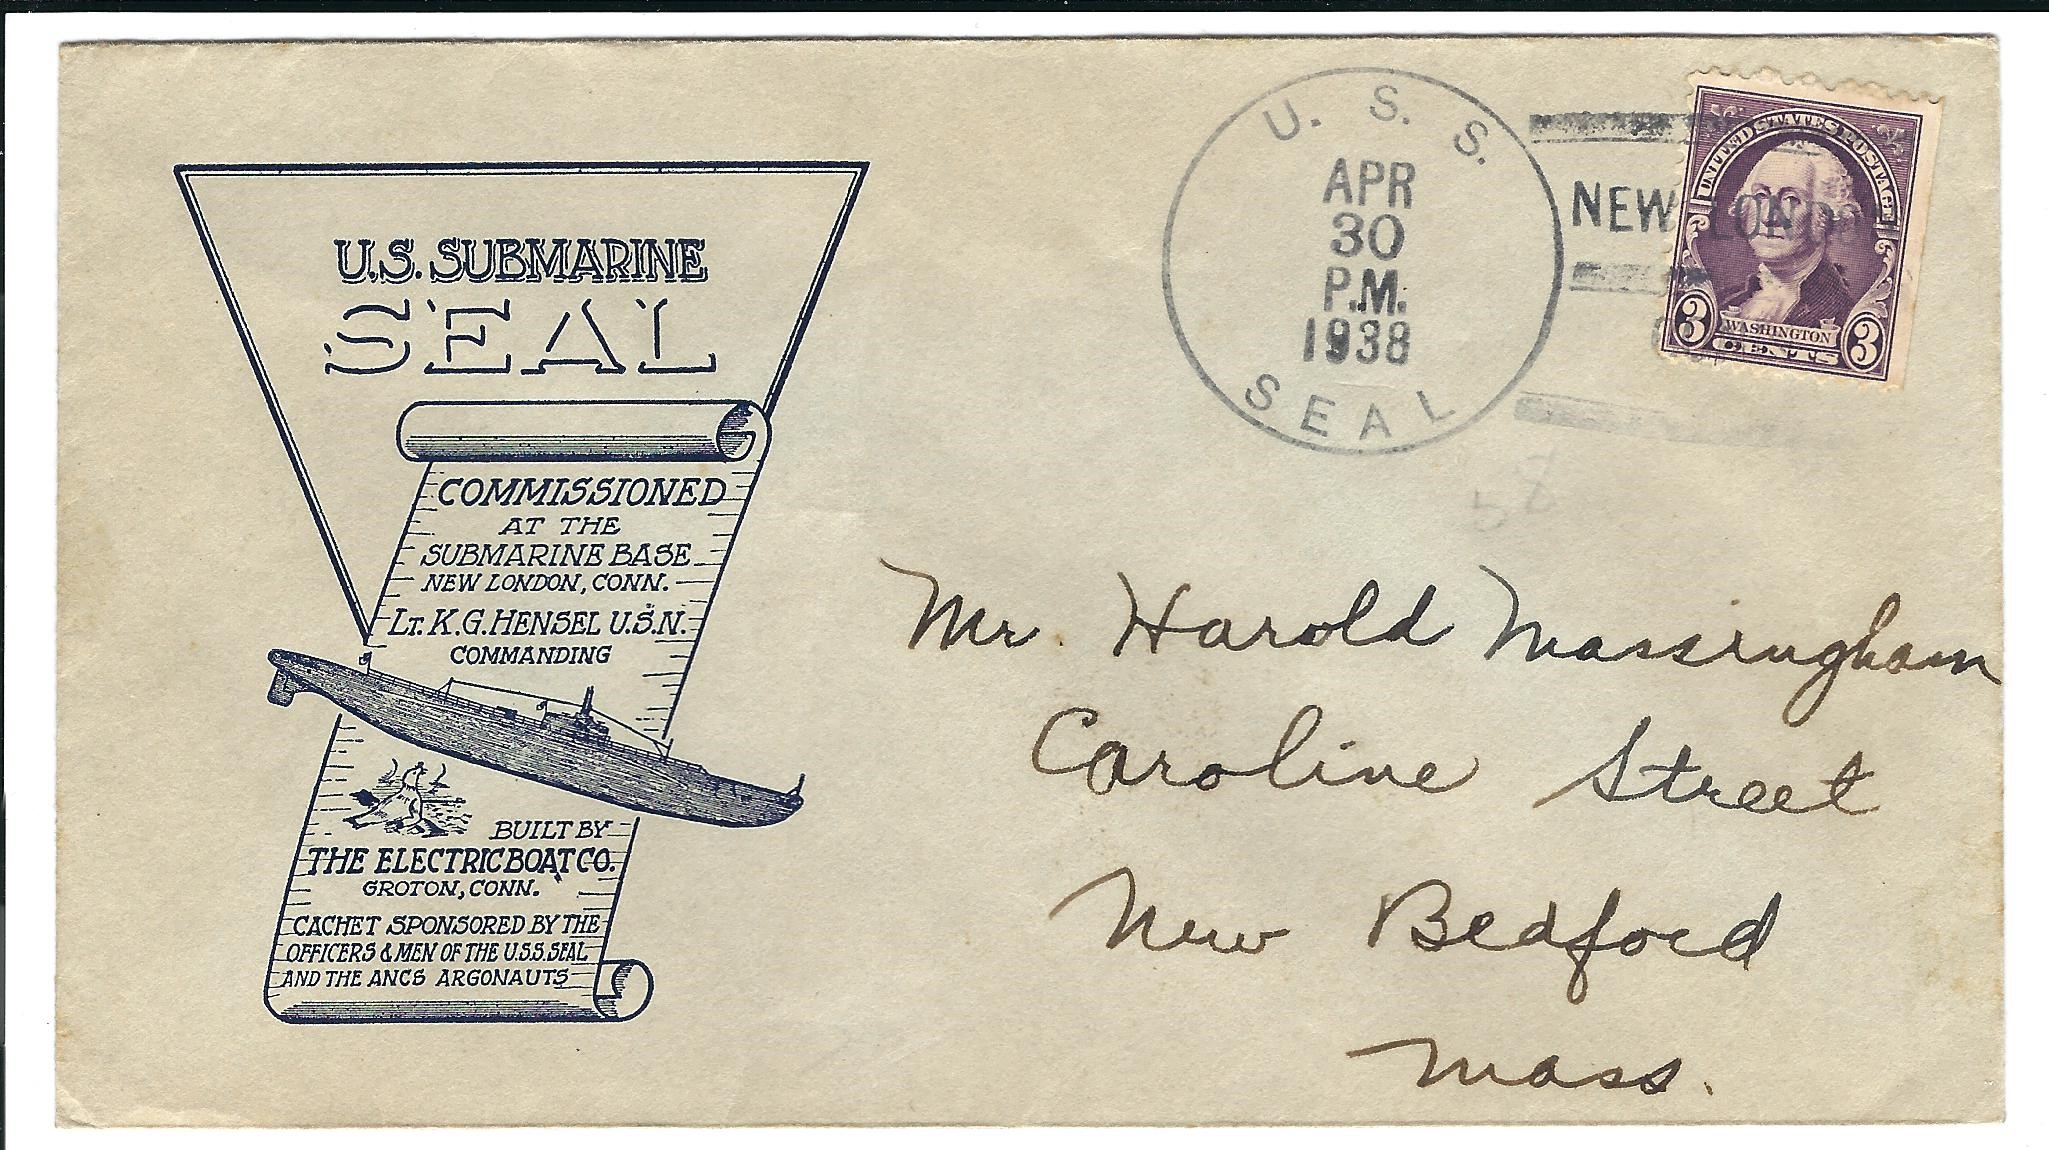 U.S. SUBMARINE
SEAL
COMMISSIONED
AT THE
SUBMARINE BASE
NEW LONDON, CONN.
LT. K.G. HENSEL U.S.N.
COMMANDING
BUILT BY
THE ELECTRIC BOAT CO.
GROTON, CONN.
CACHET SPONSORED BY THE
OFFICERS & MEN OF THE U.S.S. SEAL
AND THE ANCS ARGONAUTS
U. S. S.
APR
30
P.M.
1938
SEAL
NEW LONDON
UNITED STATES POSTAGE
WASHINGTON
3 CENTS 3
58
Mr. Harold Massingham
Caroline Street
New Bedford
Mass.